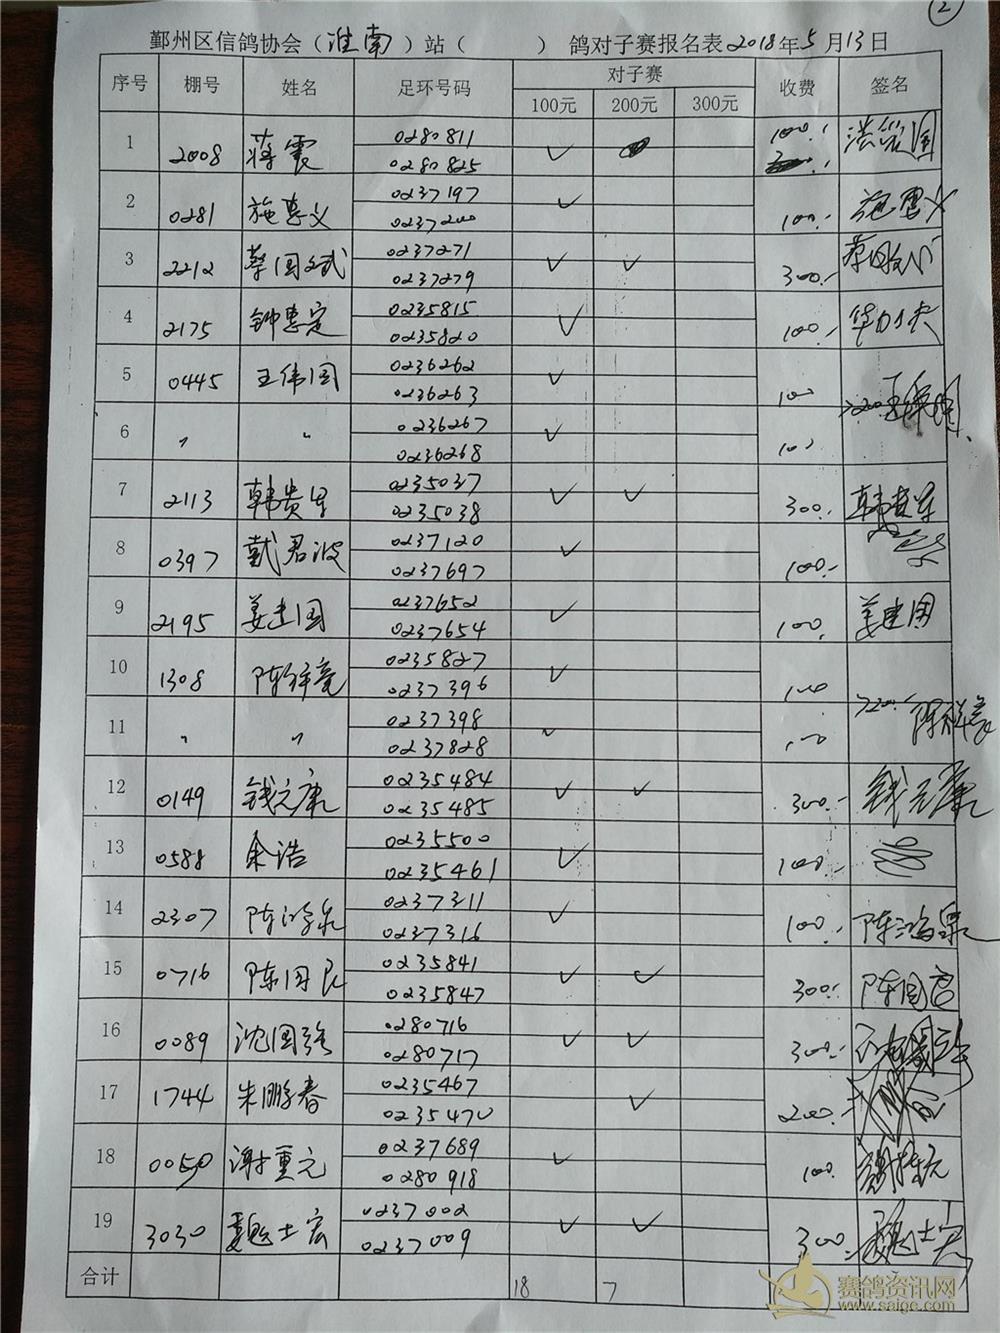 2
鄞州区信鸽协会（淮南）站（　　　）鸽对子赛报名表2018年5月13日
序号 棚号 姓名 足环号码 对子赛 收费 签名
100元 200元 300元
1 2008 蒋震 0280811 ✓ 100.-
0280825
2 0281 施惠义 0237197 ✓ 100.- 施惠义
0237200
3 2212 蔡国斌 0237271 ✓ ✓ 300.-
0237279
4 2175 钟惠定 0235815 ✓ 100.-
0235820
5 0445 王伟国 0236262 ✓ 100 >200 王伟国
0236263
6 〃 〃 0236267 ✓ 100
0236268
7 2113 韩贵军 0235037 ✓ ✓ 300.- 韩贵军
0235038
8 0397 戴君波 0237120 ✓ 100.-
0237697
9 2195 姜建国 0237652 ✓ 100. 姜建国
0237654
10 1308 陈祥亮 0235827 ✓ 100 >200. 陈祥亮
0237396
11 〃 〃 0237398 ✓ 100
0237828
12 0149 钱元康 0235484 ✓ ✓ 300.- 钱元康
0235485
13 0588 余浩 0235500 ✓ 100.-
0235461
14 2307 陈鸿泉 0237311 ✓ 100.- 陈鸿泉
0237316
15 0716 陈国民 0235841 ✓ ✓ 300.- 陈国君
0235847
16 0089 沈国强 0280716 ✓ ✓ 300.-
0280717
17 1744 朱鹏春 0235467 ✓ 200.-
0235470
18 0050 谢重元 0237689 ✓ 100.
0280918
19 3030 魏士宏 0237002 ✓ ✓ 300.- 魏士宏
0237009
合计 18 7
赛鸽资讯网
www.saige.com